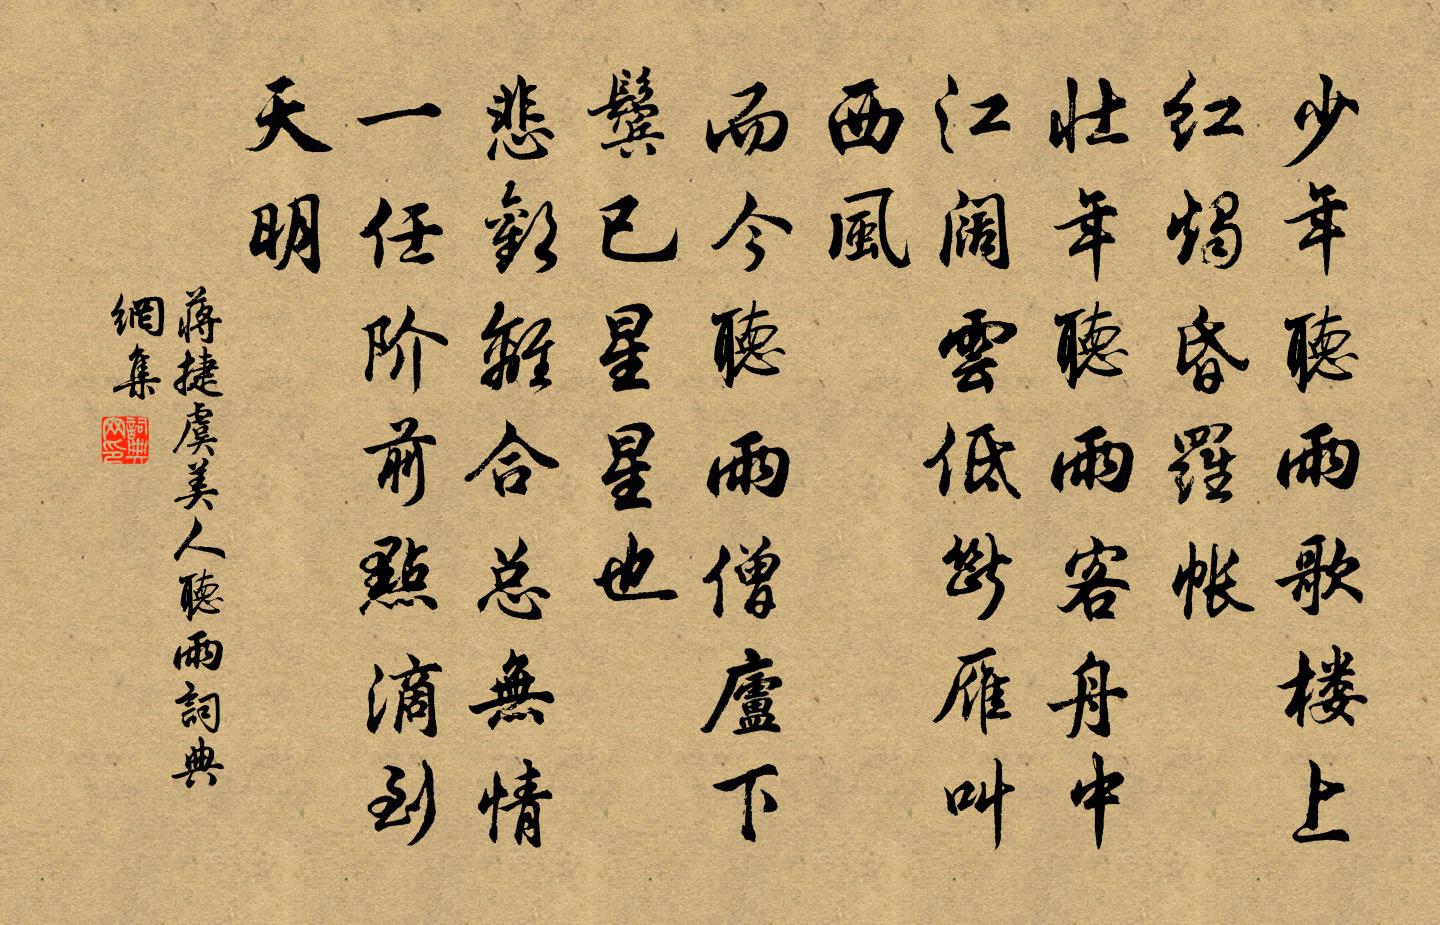 少年聽雨歌楼上
红燭昏羅帐
壮年聽雨客舟中
江阔雲低斷雁叫
西風
而今聽雨僧廬下
鬓已星星也
悲歡離合总無情
一任阶前點滴到
天明
蒋捷虞美人聽雨詞典
網集
詞典
网印